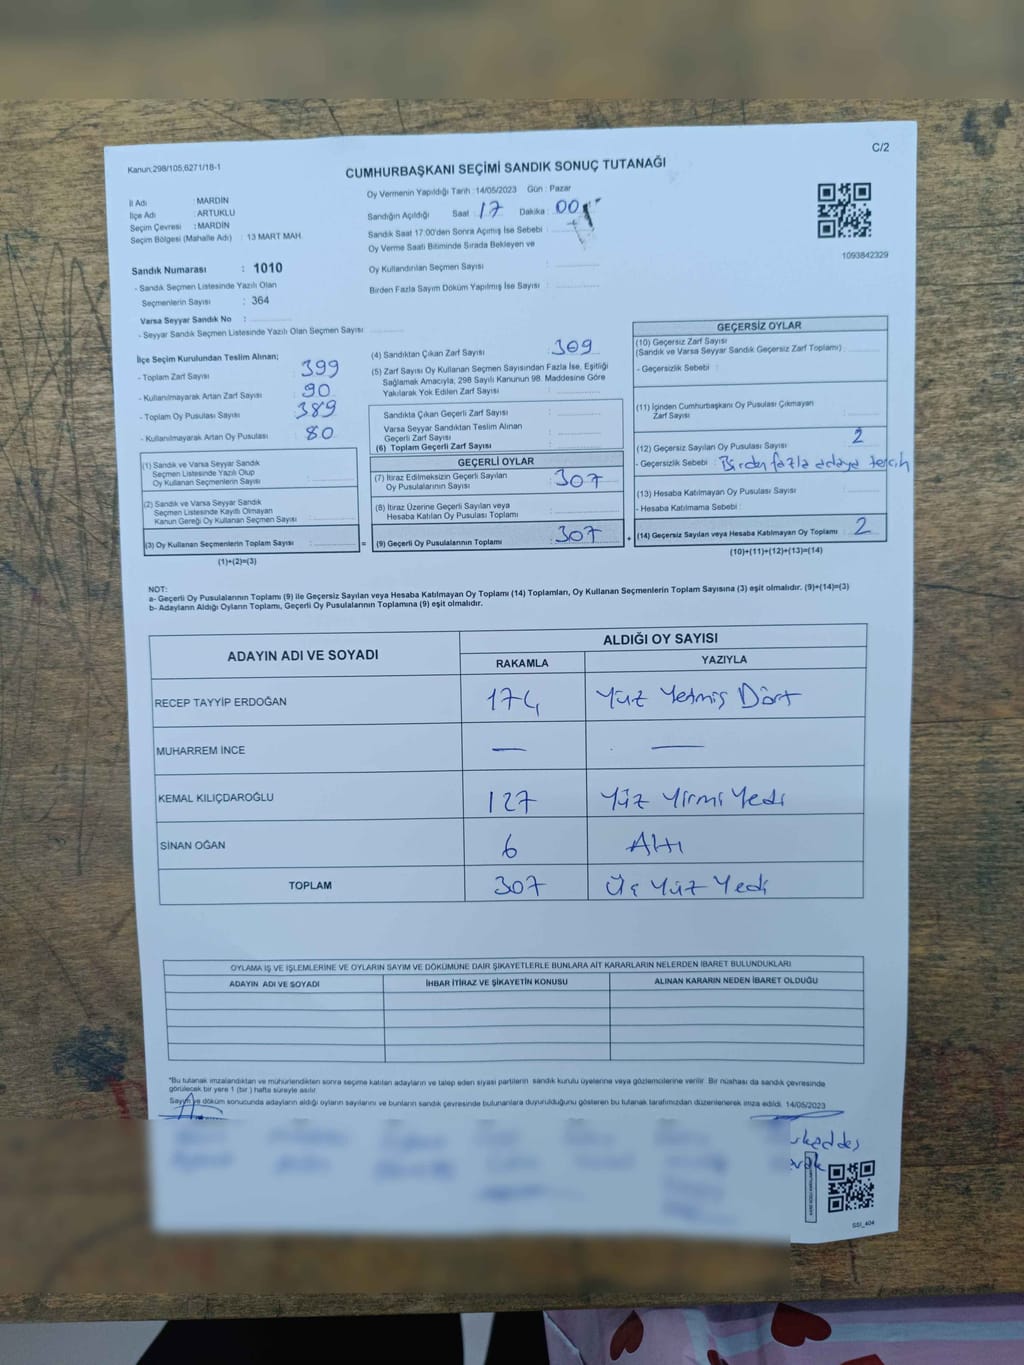 C/2
Kanun;298/105,6271/18-1
CUMHURBAŞKANI SEÇİMİ SANDIK SONUÇ TUTANAĞI
İl Adı : MARDİN
İlçe Adı : ARTUKLU
Seçim Çevresi : MARDİN
Seçim Bölgesi (Mahalle Adı) : 13 MART MAH.
Oy Vermenin Yapıldığı Tarih : 14/05/2023 Gün : Pazar
Sandığın Açıldığı Saat : 17 Dakika : 00
Sandık Saat 17:00'den Sonra Açılmış İse Sebebi :
Oy Verme Saati Bitiminde Sırada Bekleyen ve
Oy Kullandırılan Seçmen Sayısı :
Birden Fazla Sayım Döküm Yapılmış İse Sayısı :
1093842329
Sandık Numarası : 1010
- Sandık Seçmen Listesinde Yazılı Olan
Seçmenlerin Sayısı : 364
Varsa Seyyar Sandık No :
- Seyyar Sandık Seçmen Listesinde Yazılı Olan Seçmen Sayısı
İlçe Seçim Kurulundan Teslim Alınan;
- Toplam Zarf Sayısı : 399
- Kullanılmayarak Artan Zarf Sayısı : 90
- Toplam Oy Pusulası Sayısı : 389
- Kullanılmayarak Artan Oy Pusulası : 80
(1) Sandık ve Varsa Seyyar Sandık
Seçmen Listesinde Yazılı Olup
Oy Kullanan Seçmenlerin Sayısı :
(2) Sandık ve Varsa Seyyar Sandık
Seçmen Listesinde Kayıtlı Olmayan
Kanun Gereği Oy Kullanan Seçmen Sayısı :
(3) Oy Kullanan Seçmenlerin Toplam Sayısı :
(1)+(2)=(3)
(4) Sandıktan Çıkan Zarf Sayısı : 309
(5) Zarf Sayısı Oy Kullanan Seçmen Sayısından Fazla İse, Eşitliği
Sağlamak Amacıyla, 298 Sayılı Kanunun 98. Maddesine Göre
Yakılarak Yok Edilen Zarf Sayısı :
Sandıkta Çıkan Geçerli Zarf Sayısı :
Varsa Seyyar Sandıktan Teslim Alınan
Geçerli Zarf Sayısı :
(6) Toplam Geçerli Zarf Sayısı :
GEÇERLİ OYLAR
(7) İtiraz Edilmeksizin Geçerli Sayılan
Oy Pusulalarının Sayısı : 307
(8) İtiraz Üzerine Geçerli Sayılan veya
Hesaba Katılan Oy Pusulası Toplamı :
= (9) Geçerli Oy Pusulalarının Toplamı : 307
GEÇERSİZ OYLAR
(10) Geçersiz Zarf Sayısı
(Sandık ve Varsa Seyyar Sandık Geçersiz Zarf Toplamı) :
- Geçersizlik Sebebi :
(11) İçinden Cumhurbaşkanı Oy Pusulası Çıkmayan
Zarf Sayısı :
(12) Geçersiz Sayılan Oy Pusulası Sayısı : 2
- Geçersizlik Sebebi : Birden fazla adaya tercih
(13) Hesaba Katılmayan Oy Pusulası Sayısı :
- Hesaba Katılmama Sebebi :
+ (14) Geçersiz Sayılan veya Hesaba Katılmayan Oy Toplamı : 2
(10)+(11)+(12)+(13)=(14)
NOT:
a- Geçerli Oy Pusulalarının Toplamı (9) ile Geçersiz Sayılan veya Hesaba Katılmayan Oy Toplamı (14) Toplamları, Oy Kullanan Seçmenlerin Toplam Sayısına (3) eşit olmalıdır. (9)+(14)=(3)
b- Adayların Aldığı Oyların Toplamı, Geçerli Oy Pusulalarının Toplamına (9) eşit olmalıdır.
ADAYIN ADI VE SOYADI ALDIĞI OY SAYISI
RAKAMLA YAZIYLA
RECEP TAYYİP ERDOĞAN 174 Yüz Yetmiş Dört
MUHARREM İNCE — —
KEMAL KILIÇDAROĞLU 127 Yüz Yirmi Yedi
SİNAN OĞAN 6 Altı
TOPLAM 307 Üç Yüz Yedi
OYLAMA İŞ VE İŞLEMLERİNE VE OYLARIN SAYIM VE DÖKÜMÜNE DAİR ŞİKAYETLERLE BUNLARA AİT KARARLARIN NELERDEN İBARET BULUNDUKLARI
ADAYIN ADI VE SOYADI İHBAR İTİRAZ VE ŞİKAYETİN KONUSU ALINAN KARARIN NEDEN İBARET OLDUĞU
*Bu tutanak imzalandıktan ve mühürlendikten sonra seçime katılan adayların ve talep eden siyasi partilerin sandık kurulu üyelerine veya gözlemcilerine verilir. Bir nüshası da sandık çevresinde
görülecek bir yere 1 (bir) hafta süreyle asılır.
Sayım ve döküm sonucunda adayların aldığı oyların sayılarını ve bunların sandık çevresinde bulunanlara duyurulduğunu gösteren bu tutanak tarafımızdan düzenlenerek imza edildi. 14/05/2023
SSI_404